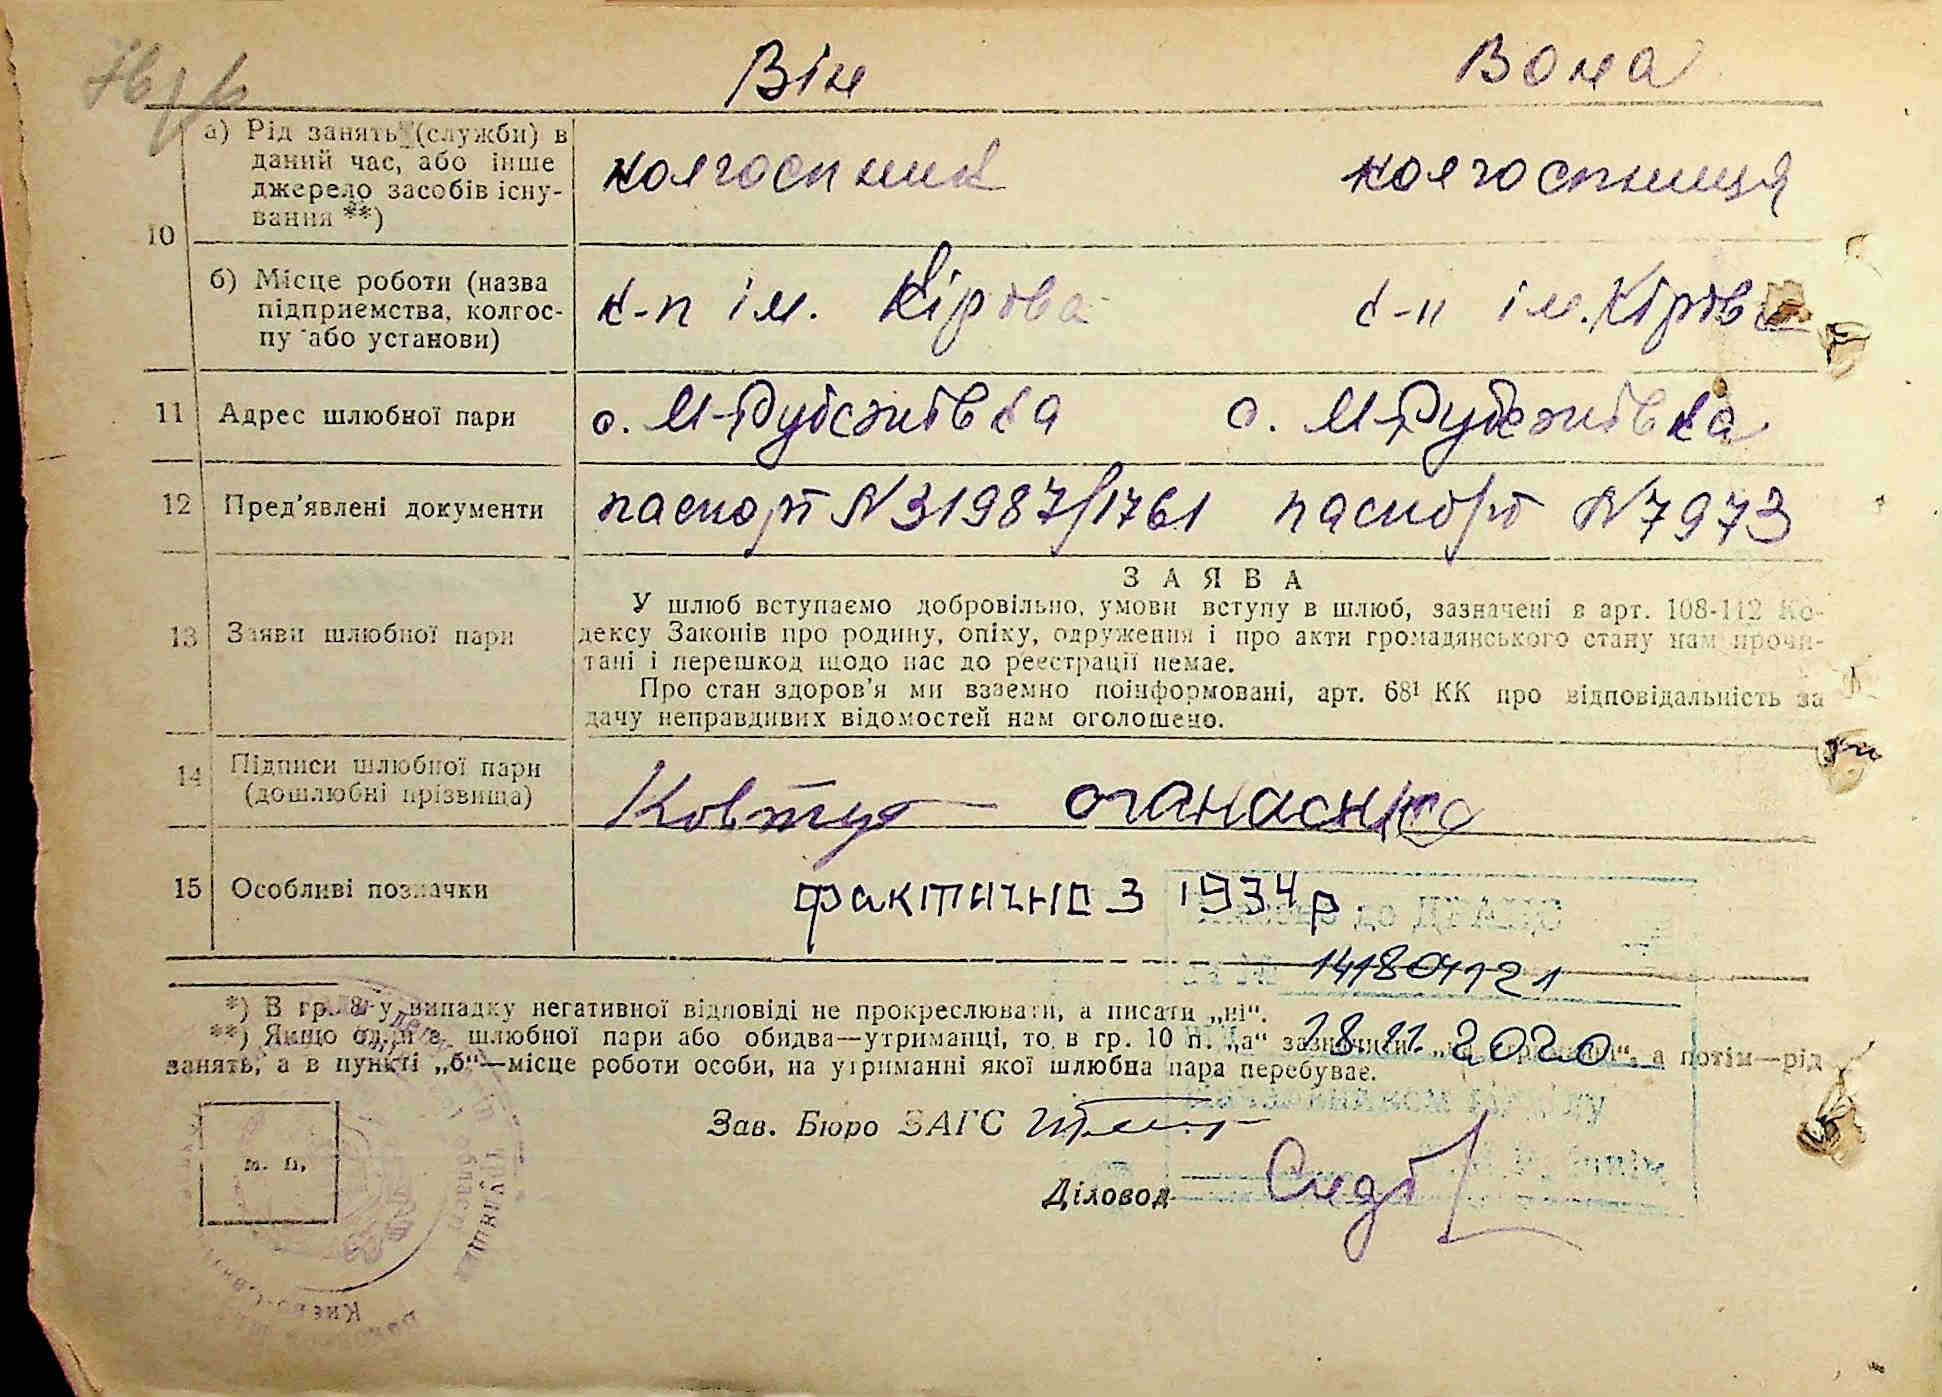 Він Вона
10
а) Рід занять (служби) в
даний час, або інше
джерело засобів існу-
вання **)
колгоспник колгоспниця
б) Місце роботи (назва
підприємства, колгос-
пу або установи)
к-п ім. Кірова к-п ім. Кірова
11 Адрес шлюбної пари
с. М-Рубежівка с. М-Рубежівка
12 Пред'явлені документи
паспорт N 31987/1761 паспорт N 7973
13 Заяви шлюбної пари
ЗАЯВА
У шлюб вступаємо добровільно, умови вступу в шлюб, зазначені в арт. 108-112 Ко-
дексу Законів про родину, опіку, одруження і про акти громадянського стану нам прочи-
тані і перешкод щодо нас до реєстрації немає.
Про стан здоров'я ми взаємно поінформовані, арт. 68¹ КК про відповідальність за
дачу неправдивих відомостей нам оголошено.
14 Підписи шлюбної пари
(дошлюбні прізвища)
Ковтун
15 Особливі позначки
фактично з 1934 р.
до ДРАЦС
14180412 1
*) В гр. 8 у випадку негативної відповіді не прокреслювати, а писати „ні“.
**) Якщо один з шлюбної пари або обидва—утриманці, то в гр. 10 п. „а“ а потім—рід
18 11 2020
занять, а в пункті „б“—місце роботи особи, на утриманні якої шлюбна пара перебуває.
Зав. Бюро ЗАГС
м. п.
Діловод